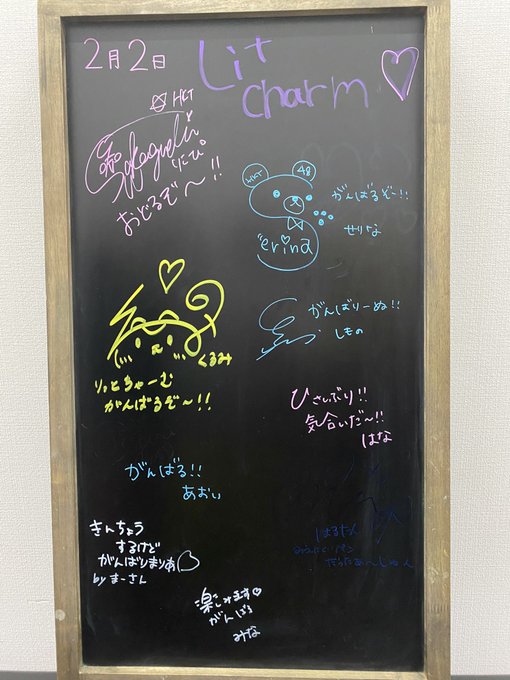 2月2日
Lit
charm
HKT
Sakaguchi
りこぴ
おどるぞ〜!!
HKT
48
がんばるぞー!!
せりな
erina
くるみ
りっとちゃーむ
がんばるぞ〜!!
がんばりーぬ!!
しもの
ひさしぶり!!
気合いだ〜!!
はな
がんばる!!
あおい
きんちょう
するけど
がんばりまりあ♡
by まーさん
楽しみます♡
がんばる
みな